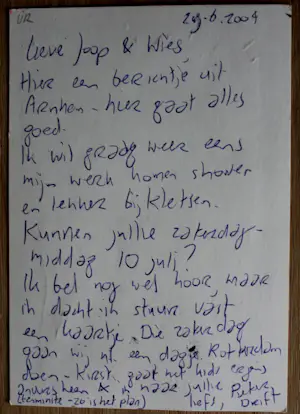 29-6.2004
Lieve Joop & Wies
Hier een berichtje uit
Arnhem - hier gaat alles
goed.
Ik wil graag weer eens
mijn werk komen showen
en lekker bijkletsen.
Kunnen jullie zaterdag-
middag 10 juli?
Ik bel nog wel hoor, maar
ik dacht ik stuur vast
een kaartje. Die zaterdag
gaan wij nl. een dagje Rotterdam
doen - gaat met kids ergens
heen & ik naar jullie
(tenminste - zo is het plan) liefs,